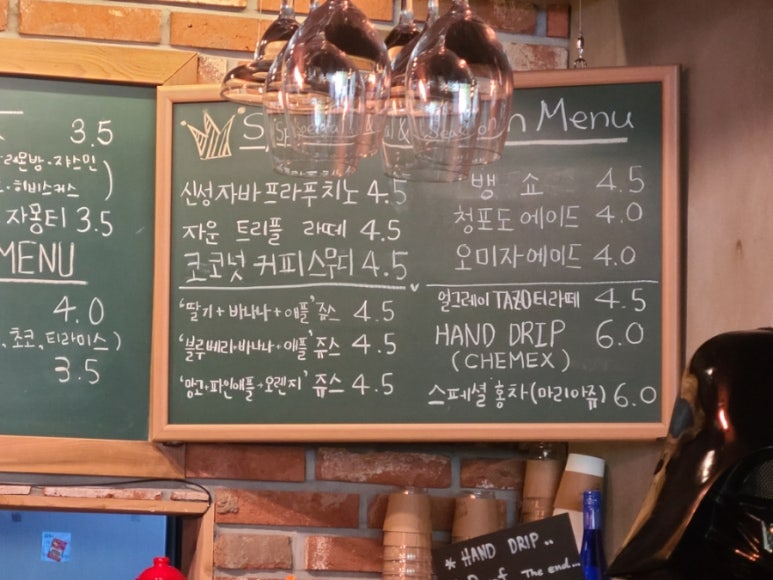 3.5
자몽티 3.5
MENU
4.0
초코, 티라미스)
3.5
Menu
신성자바프라푸치노 4.5
자운 트리플 라떼 4.5
코코넛 커피스무디 4.5
'딸기+바나나+애플' 쥬스 4.5
'블루베리+바나나+애플' 쥬스 4.5
'망고+파인애플+오렌지' 쥬스 4.5
뱅 쇼 4.5
청포도에이드 4.0
오미자에이드 4.0
얼그레이 TAZO티라떼 4.5
HAND DRIP 6.0
(CHEMEX)
스페셜 홍차(마리아쥬) 6.0
* HAND DRIP ..
The end...